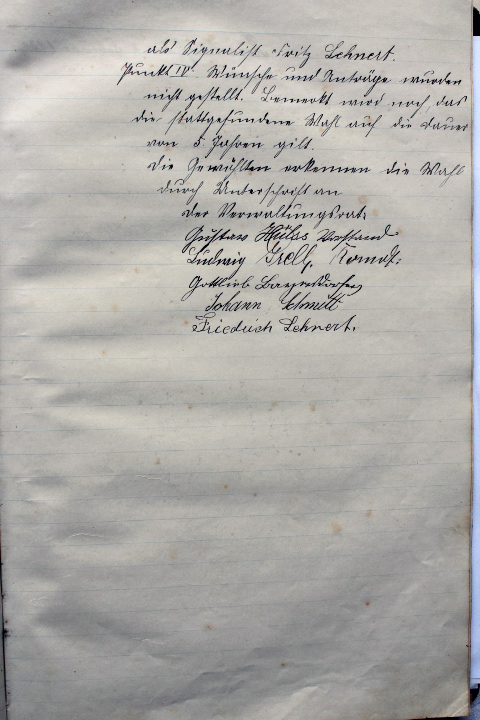 als Signalist Fritz Lehnert.
Punkt IV. Wünsche und Anträge wurden
nicht gestellt. Bemerkt wird noch, das
die stattgefundene Wahl auf die Dauer
von 5 Jahren gilt.
Die Gewählten erkennen die Wahl
durch Unterschrift an
der Verwaltungsrat:
Gustav Hülss Vorstand
Ludwig Grell,
Gottlieb
Johann Schmitt
Friedrich Lehnert.